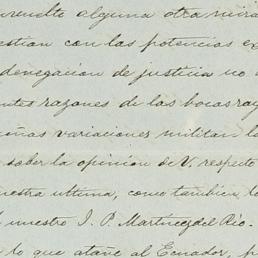 resuelto alguna otra mira
estion con las potencias ex
denegacion de justicia no
razones de las
variaciones militan l
saber la opinion de V. respecto
uestra ultima, como tambien l
nuestro J. P. Martinez del Rio.
lo que atañe al Ecuador, p